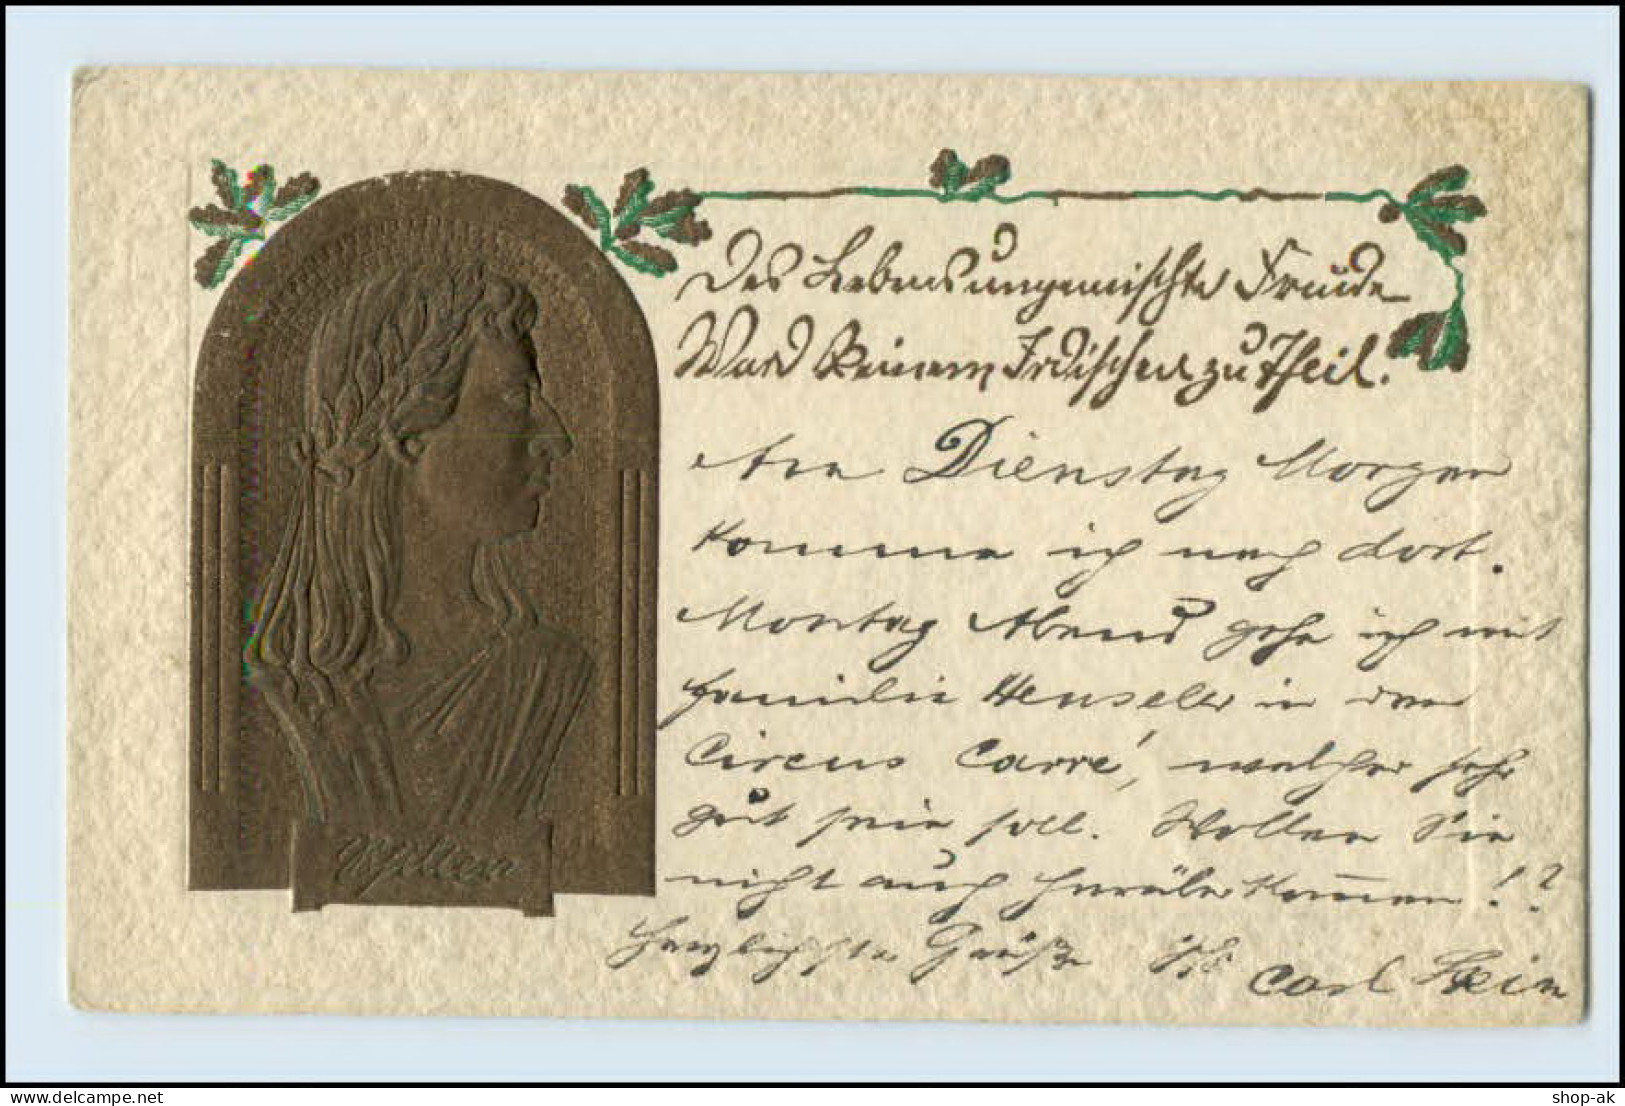 Des Lebens ungemischte Freude
Ward Keinem Irdischen zu Theil.
Am Dienstag Morgen
komme ich nach dort.
Montag Abend gehe ich mit
Familie Henseler in den
Circus Carré, welcher sehr
gut sein soll. Wollen Sie
nicht auch herüberkommen!?
Herzlichste Grüße Ihr
Carl Hein
www.delcampe.net
shop-ak